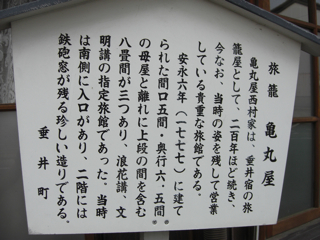 旅籠 亀丸屋
亀丸屋西村家は、垂井宿の旅
籠屋として、二百年ほど続き、
今なお、当時の姿を残して営業
している貴重な旅館である。
安永六年（一七七七）に建て
られた間口五間・奥行六．五間
の母屋と離れに上段の間を含む
八畳間が三つあり、浪花講、文
明講の指定旅館であった。当時
は南側に入口があり、二階には
鉄砲窓が残る珍しい造りである。
垂井町